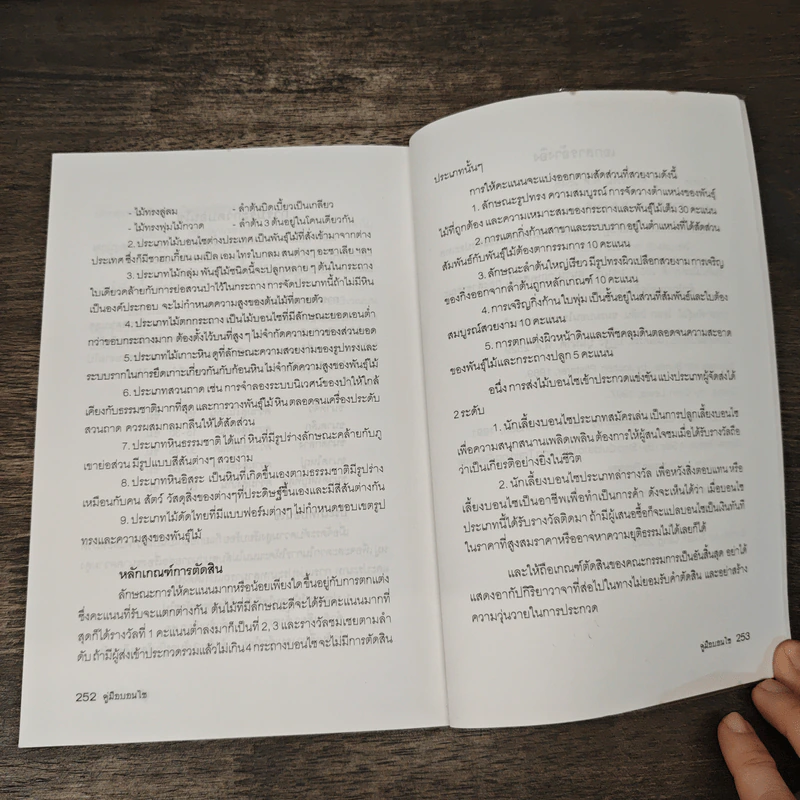 - ไม้ทรงลู่ลม - ลำต้นบิดเบี้ยวเป็นเกลียว
- ไม้ทรงพุ่มไม้กวาด - ลำต้น 3 ต้นอยู่ในโคนเดียวกัน
2. ประเภทไม้บอนไซต่างประเทศ เป็นพันธุ์ไม้ที่สั่งเข้ามาจากต่าง
ประเทศ ซึ่งก็มีชาฮกเกี้ยน เมเปิล เอม ไทรใบกลม สนต่างๆ อะซาเลีย ฯลฯ
3. ประเภทไม้กลุ่ม พันธุ์ไม้ชนิดนี้จะปลูกหลาย ๆ ต้นในกระถาง
ใบเดียวคล้ายกับการย่อสวนป่าไว้ในกระถาง การจัดประเภทนี้ถ้าไม่มีหิน
เป็นองค์ประกอบ จะไม่กำหนดความสูงของต้นไม้ที่ตายตัว
4. ประเภทไม้ตกกระถาง เป็นไม้บอนไซที่มีลักษณะยอดเอนต่ำ
กว่าขอบกระถางมาก ต้องตั้งไว้บนที่สูง ๆ ไม่จำกัดความยาวของส่วนยอด
5. ประเภทไม้เกาะหิน ดูที่ลักษณะความสวยงามของรูปทรงและ
ระบบรากในการยึดเกาะเกี่ยวกันกับก้อนหิน ไม่จำกัดความสูงของพันธุ์ไม้
6. ประเภทสวนถาด เช่น การจำลองระบบนิเวศน์ของป่าให้ใกล้
เคียงกับธรรมชาติมากที่สุด และการวางพันธุ์ไม้ หิน ตลอดจนเครื่องประดับ
สวนถาด ควรผสมกลมกลืนให้ได้สัดส่วน
7. ประเภทหินธรรมชาติ ได้แก่ หินที่มีรูปร่างลักษณะคล้ายกับภู
เขาย่อส่วน มีรูปแบบสีสันต่างๆ สวยงาม
8. ประเภทหินอิสระ เป็นหินที่เกิดขึ้นเองตามธรรมชาติมีรูปร่าง
เหมือนกับคน สัตว์ วัตถุสิ่งของต่างๆที่ประดิษฐ์ขึ้นเองและมีสีสันต่างกัน
9. ประเภทไม้ดัดไทยที่มีแบบฟอร์มต่างๆ ไม่กำหนดขอบเขตรูป
ทรงและความสูงของพันธุ์ไม้
หลักเกณฑ์การตัดสิน
ลักษณะการให้คะแนนมากหรือน้อยเพียงใดขึ้นอยู่กับการตกแต่ง
ซึ่งคะแนนที่รับจะแตกต่างกัน ต้นไม้ที่มีลักษณะดีจะได้รับคะแนนมากที่
สุดก็ได้รางวัลที่ 1 คะแนนต่ำลงมาก็เป็นที่ 2, 3 และรางวัลชมเชยตามลำ
ดับ ถ้ามีผู้ส่งเข้าประกวดรวมแล้วไม่เกิน 4 กระถางบอนไซจะไม่มีการตัดสิน
252 คู่มือบอนไซ
ประเภทนั้นๆ
การให้คะแนนจะแบ่งออกตามสัดส่วนที่สวยงามดังนี้
1. ลักษณะรูปทรง ความสมบูรณ์ การจัดวางตำแหน่งของพันธุ์
ไม้ที่ถูกต้อง และความเหมาะสมของกระถางและพันธุ์ไม้เต็ม 30 คะแนน
2. การแตกกิ่งก้านสาขาและระบบราก อยู่ในตำแหน่งที่ได้สัดส่วน
สัมพันธ์กับพันธุ์ไม้ต้องตากรรมการ 10 คะแนน
3. ลักษณะลำต้นใหญ่เรียว มีรูปทรงผิวเปลือกสวยงาม การเจริญ
ของกิ่งออกจากลำต้นถูกหลักเกณฑ์ 10 คะแนน
4. การเจริญกิ่งก้าน ใบพุ่ม เป็นชั้นอยู่ในส่วนที่สัมพันธ์และใบต้อง
สมบูรณ์สวยงาม 10 คะแนน
5. การตกแต่งผิวหน้าดินและพืชคลุมดินตลอดจนความสะอาด
ของพันธุ์ไม้และกระถางปลูก 5 คะแนน
อนึ่ง การส่งไม้บอนไซเข้าประกวดแข่งขัน แบ่งประเภทผู้จัดส่งได้
2 ระดับ
1. นักเลี้ยงบอนไซประเภทสมัครเล่น เป็นการปลูกเลี้ยงบอนไซ
เพื่อความสนุกสนานเพลิดเพลิน ต้องการให้ผู้สนใจชมเมื่อได้รับรางวัลถือ
ว่าเป็นเกียรติอย่างยิ่งในชีวิต
2. นักเลี้ยงบอนไซประเภทล่ารางวัล เพื่อหวังสิ่งตอบแทน หรือ
เลี้ยงบอนไซเป็นอาชีพเพื่อทำเป็นการค้า ดังจะเห็นได้ว่า เมื่อบอนไซ
ประเภทนี้ได้รับรางวัลติดมา ถ้ามีผู้เสนอซื้อก็จะแปลบอนไซเป็นเงินทันที
ในราคาที่สูงสมราคาหรืออาจหาความยุติธรรมไม่ได้เลยก็ได้
และให้ถือเกณฑ์ตัดสินของคณะกรรมการเป็นอันสิ้นสุด อย่าได้
แสดงอากัปกิริยาวาจาที่ส่อไปในทางไม่ยอมรับคำตัดสิน และอย่าสร้าง
ความวุ่นวายในการประกวด
คู่มือบอนไซ 253